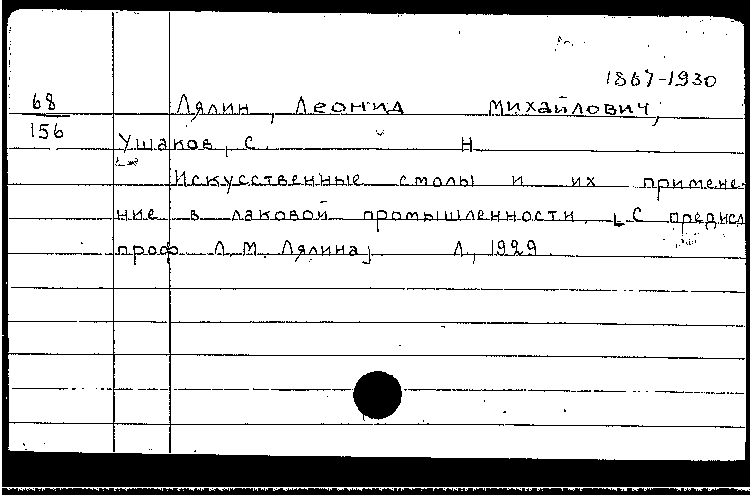 1867-1930
68 Лялин, Леонид Михайлович,
156
Ушаков, С. Н.
Искусственные смолы и их примене-
ние в лаковой промышленности. [С предисл
проф Л.М. Лялина] Л, 1929.